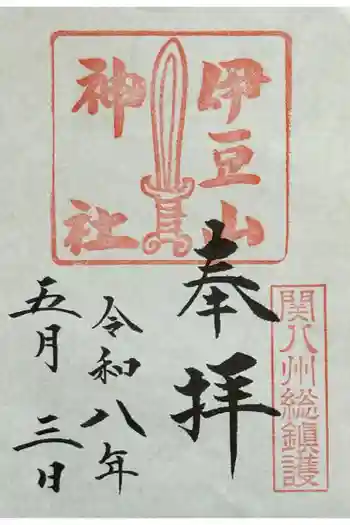 伊豆山
神社
奉拝
関八州総鎮護
令和八年
五月三日